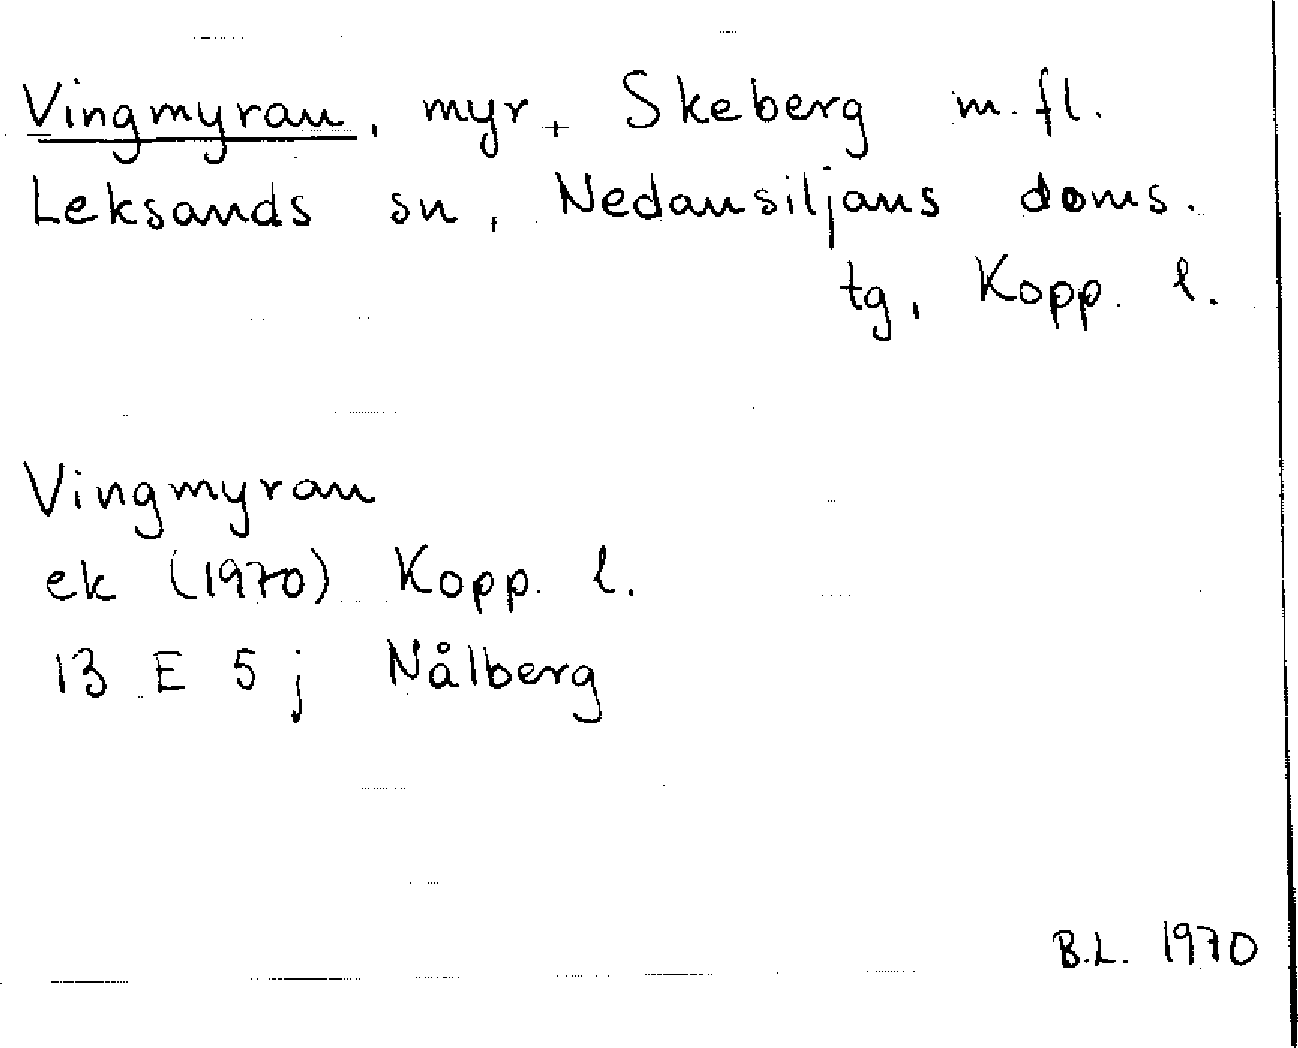 Vingmyran, myr, Skeberg m.fl.
Leksands sn, Nedansiljans doms.
tg, Kopp. l.
Vingmyran
ek (1970) Kopp. l.
13 E 5 j Nålberg
B.L. 1970